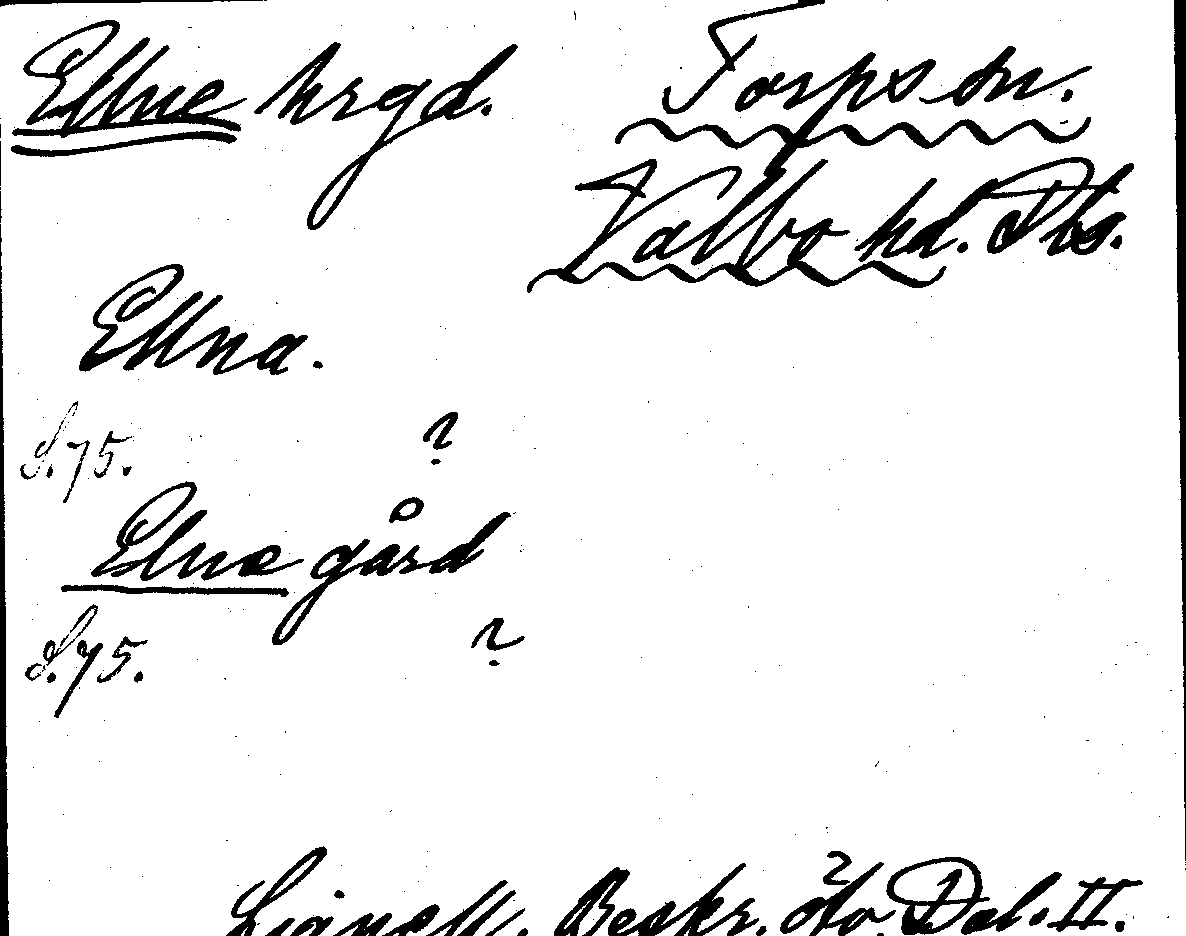 Ellne hrgd. Torps sn.
Valbo hd. Dls.
Ellna.
S.75. ?
Elne gård
S.75. ?
Lignell, Beskr. öfv. Dal. II.